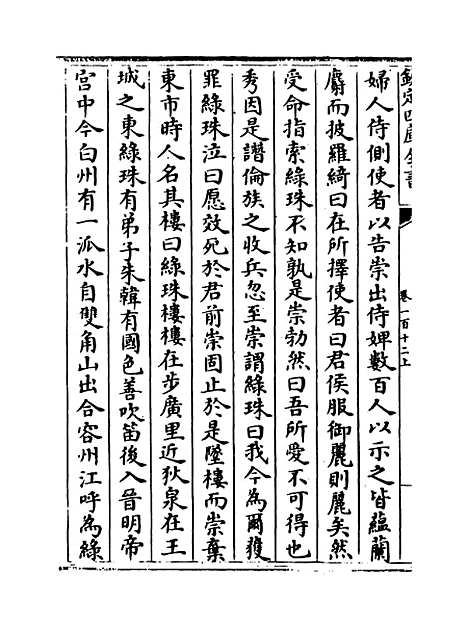 欽定四庫全書
卷一百十二上
婦人侍側使者以告崇出侍婢數百人以示之皆蘊蘭
麝而披羅綺曰在所擇使者曰君侯服御麗則麗矣然
受命指索綠珠不知孰是崇勃然曰吾所愛不可得也
秀因是譖倫族之收兵忽至崇謂綠珠曰我今為爾獲
罪綠珠泣曰愿效死於君前崇固止於是墜樓而崇棄
東市時人名其樓曰綠珠樓樓在步廣里近狄泉在王
城之東綠珠有弟子朱韓有國色善吹笛後入晉明帝
宫中今白州有一派水自雙角山出合容州江呼為綠